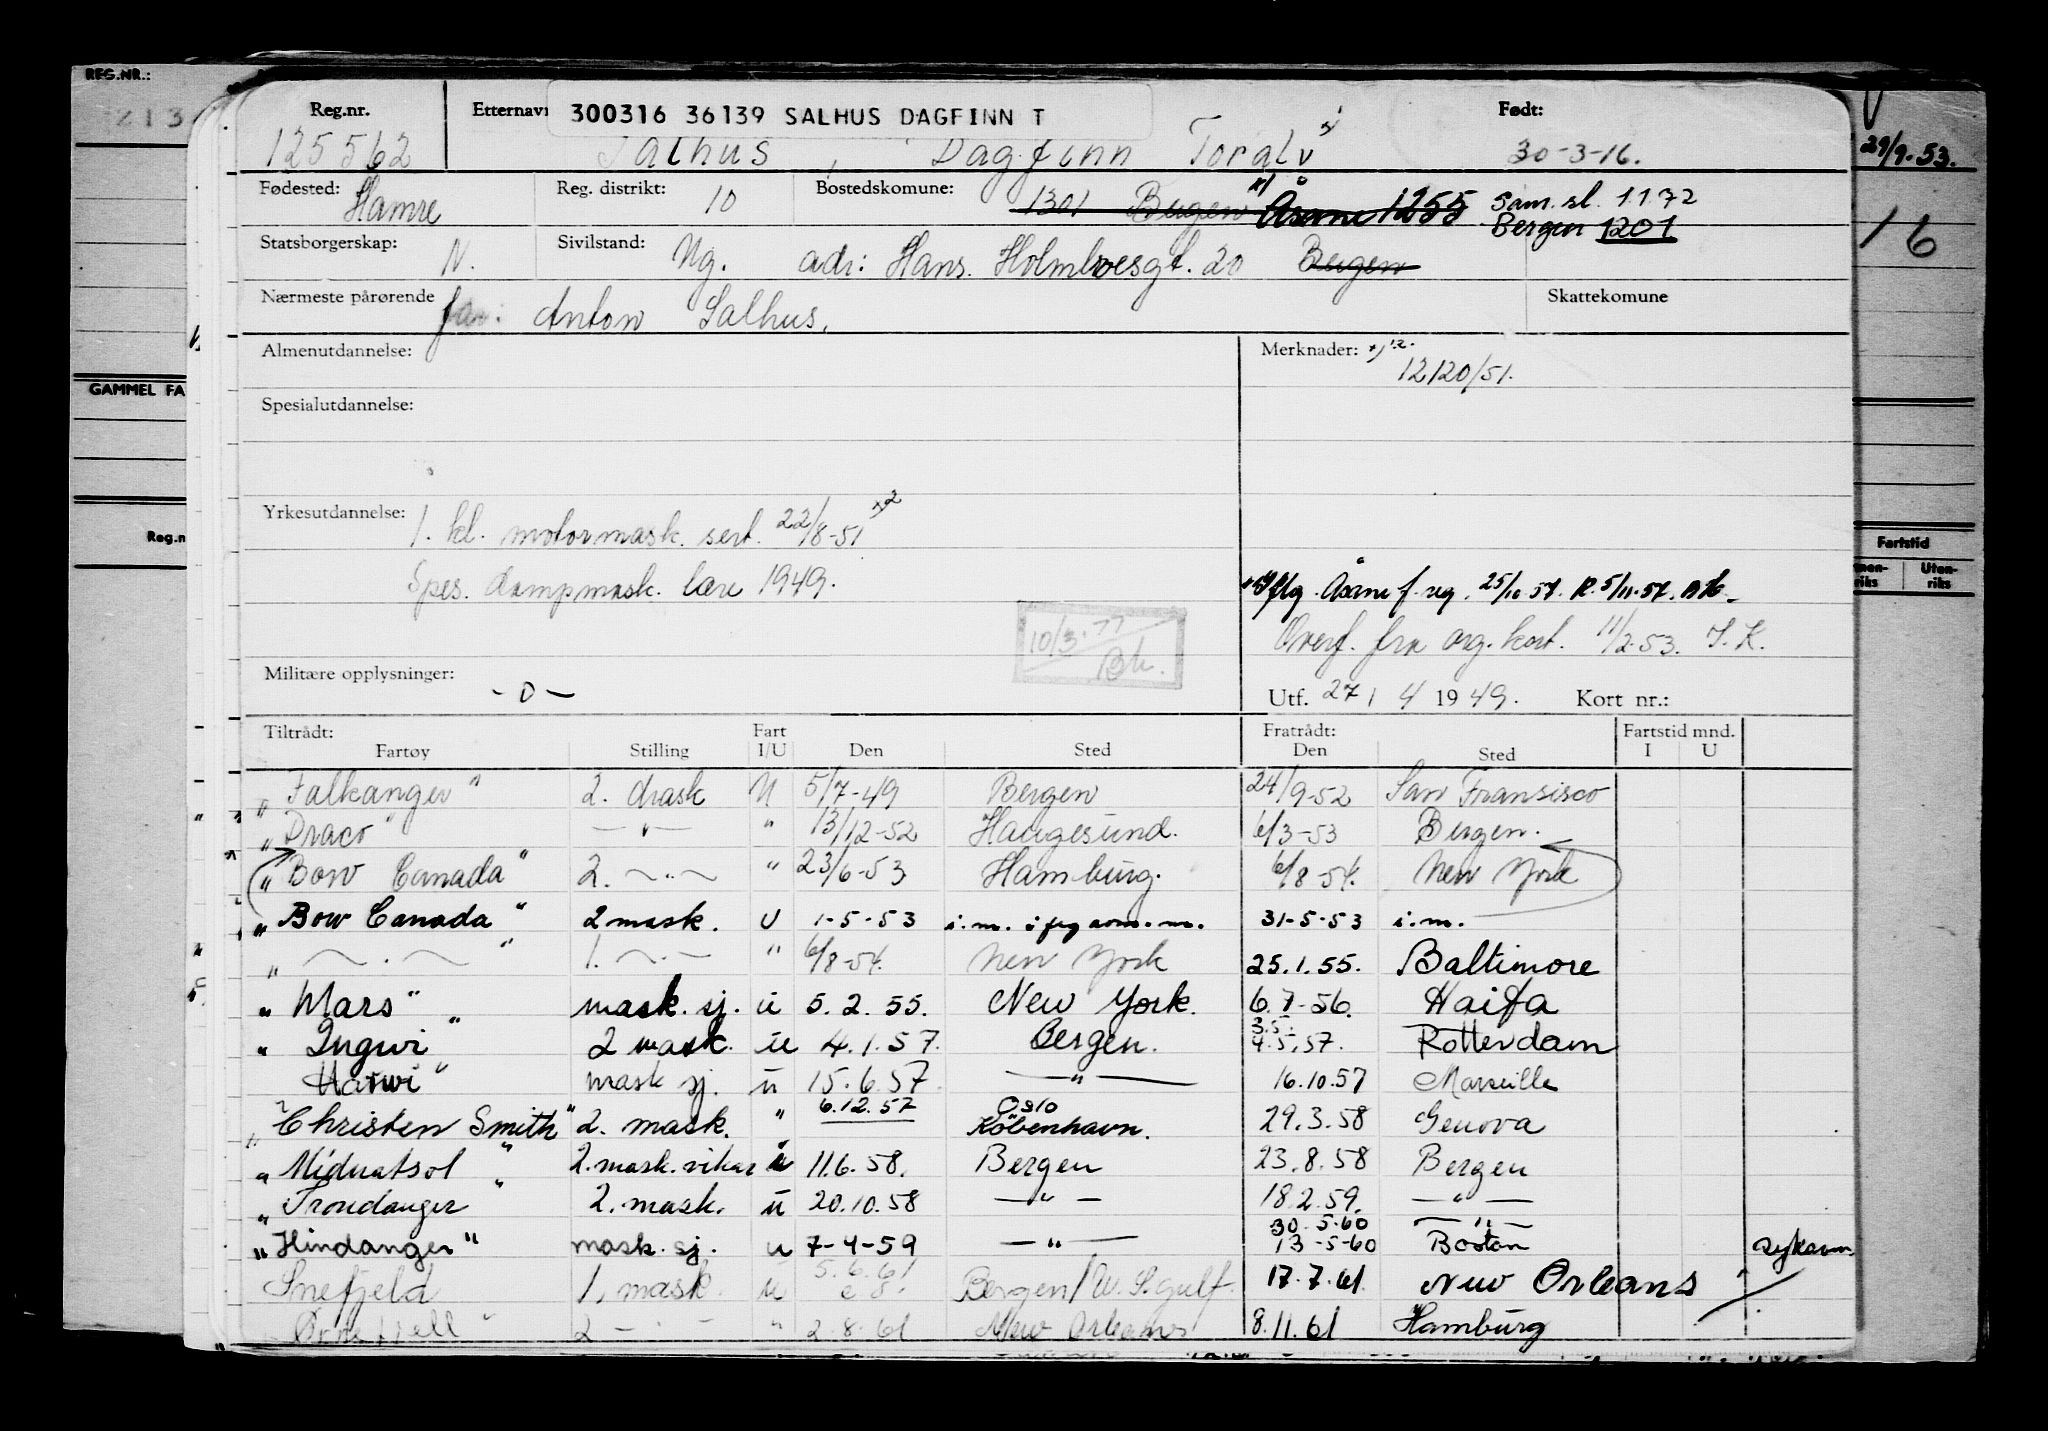 REG.NR.:
213
Reg.nr. Etternavn 300316 36139 SALHUS DAGFINN T Født:
125562 Salhus, Dagfinn Toralv 30-3-16. 29/9-53.
Fødested: Hamre Reg. distrikt: 10 Bostedskomune: 1301 Bergen x/ Åsane 1255 Sam. sl. 1 1 72
Bergen 1201
16
Statsborgerskap: N. Sivilstand: Ug. adr: Hans Holmboesgt. 20 Bergen
Nærmeste pårørende far: Anton Salhus. Skattekomune
Almenutdannelse: Merknader:
12120/51.
GAMMEL FA
Spesialutdannelse:
Yrkesutdannelse: 1. kl. motormask. sert. 22/8-51 x2
Reg.n
Fartstid
Uten-
riks
Spes. dampmask. lære 1949.
flg. Åsane f. reg. 25/10 57. R. 5/11-57.
10/3.77
Bh.
Overf. fra org. kort. 11/2-53. J.K.
Militære opplysninger: -0-
Utf. 27/4 1949. Kort nr.:
Tiltrådt: Fart Fratrådt: Fartstid mnd.
Fartøy Stilling I/U Den Sted Den Sted I U
"Falkanger" 2. mask U 5/7-49 Bergen 24/9-52 San Fransisco
"Draco" —"— " 13/12-52 Haugesund. 6/3-53 Bergen.
"Bow Canada" 2. —"— " 23/6-53 Hamburg. 6/8-54. New York
"Bow Canada" 2 mask. U 1-5-53 i.m. 31-5-53 i.m.
" —.— " 1. —.— " 6/8-54. New York 25.1.55. Baltimore
"Mars" mask. sj. u 5.2.55. New York. 6.7-56. Haifa
"Ingwi" 2 mask. u 4.1.57. Bergen. 3.5.
4.5.57. Rotterdam
"Harwi" mask sj. u 15.6.57 —"— 16.10.57 Marseille
"Christen Smith" 2. mask. " 6.12.57 Oslo
København. 29.3.58 Genova
"Midnatsol" 2. mask. vikar u 11.6.58. Bergen 23.8.58 Bergen
"Trondanger" 2. mask. u 20.10.58 —"— 18.2.59. —"—
30-5-60 —"—
"Hindanger" mask. sj. u 7-4-59 —"— 13-5-60 Boston sykavm.
Snefjeld 1. mask. u 5.6.61 Bergen/U.S. gulf. 17.7.61. New Orleans
Ørnefjell" 2 —.— " 2.8.61 New Orleans 8.11.61 Hamburg